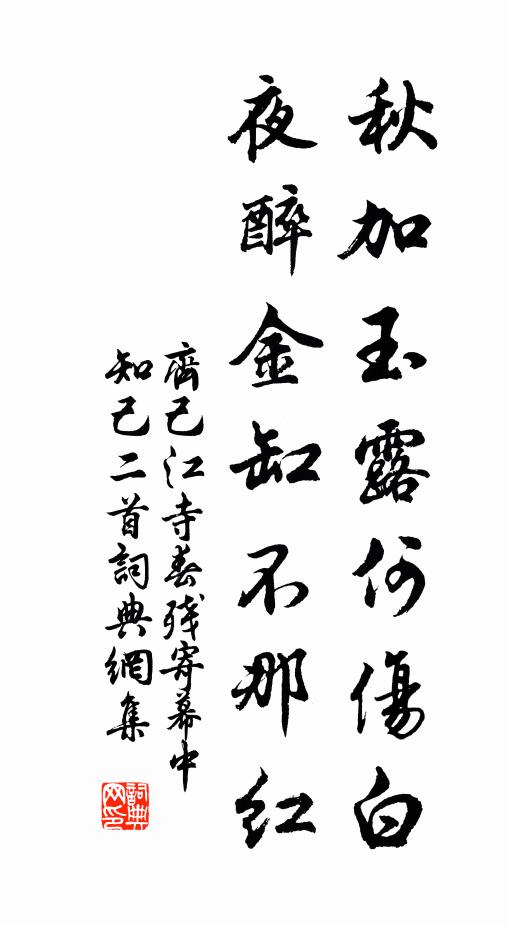 秋加玉露何傷白
夜醉金缸不那红
齊己江寺春残寄幕中
知己二首詞典網集
詞典网印